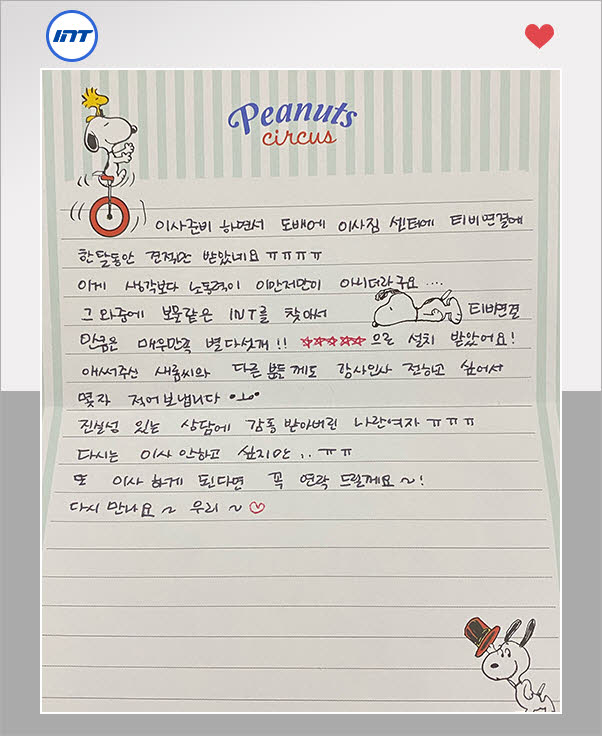 INT
Peanuts
circus
이사준비 하면서 도배에 이사짐 센터에 티비연결에
한달동안 견적만 받았네요 ㅠㅠㅠㅠ
이게 생각보다 노동력이 이만저만이 아니더라구요 ....
그 와중에 보물같은 INT를 찾아서 티비연결
만큼은 매우만족 별다섯개!! ☆☆☆☆☆으로 설치 받았어요!
애써주신 새롬씨와 다른 분들께도 감사인사 전하고 싶어서
몇자 적어보냅니다
진실성 있는 상담에 감동 받아버린 나란여자 ㅠㅠㅠ
다시는 이사 안하고 싶지만 .. ㅠㅠ
또 이사 하게 된다면 꼭 연락 드릴께요~!
다시 만나요~ 우리~♡